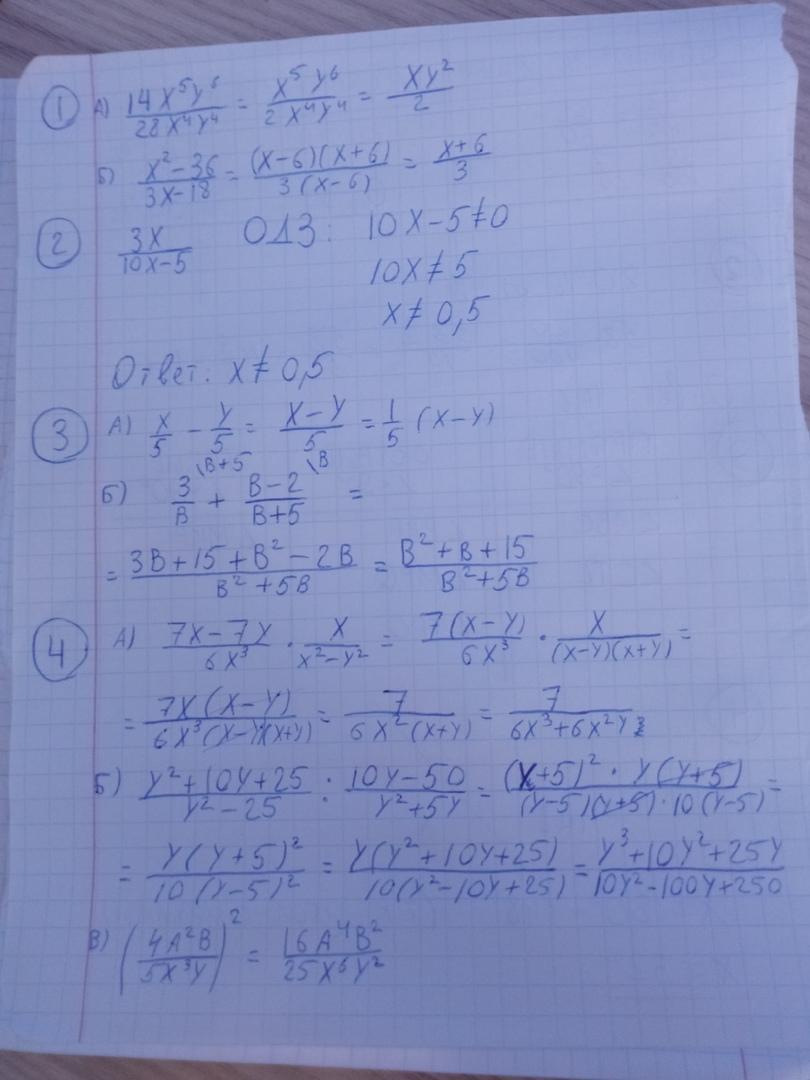 ① А) 14x⁵y⁶/28x⁴y⁴ = x⁵y⁶/2x⁴y⁴ = xy²/2
Б) x²-36/3x-18 = (x-6)(x+6)/3(x-6) = x+6/3
② 3x/10x-5 ОДЗ: 10x-5≠0
10x≠5
x≠0,5
Ответ: x≠0,5
③ А) x/5 - y/5 = x-y/5 = 1/5 (x-y)
Б) 3/B \B+5 + B-2/B+5 \B =
= 3B+15+B²-2B/B²+5B = B²+B+15/B²+5B
④ А) 7x-7y/6x³ · x/x²-y² = 7(x-y)/6x³ · x/(x-y)(x+y) =
= 7x(x-y)/6x³(x-y)(x+y) = 7/6x²(x+y) = 7/6x³+6x²y
Б) y²+10y+25/y²-25 : 10y-50/y²+5y = (y+5)²·y(y+5)/(y-5)(y+5)·10(y-5) =
= y(y+5)²/10(y-5)² = y(y²+10y+25)/10(y²-10y+25) = y³+10y²+25y/10y²-100y+250
В) (4A²B/5x³y)² = 16A⁴B²/25x⁶y²